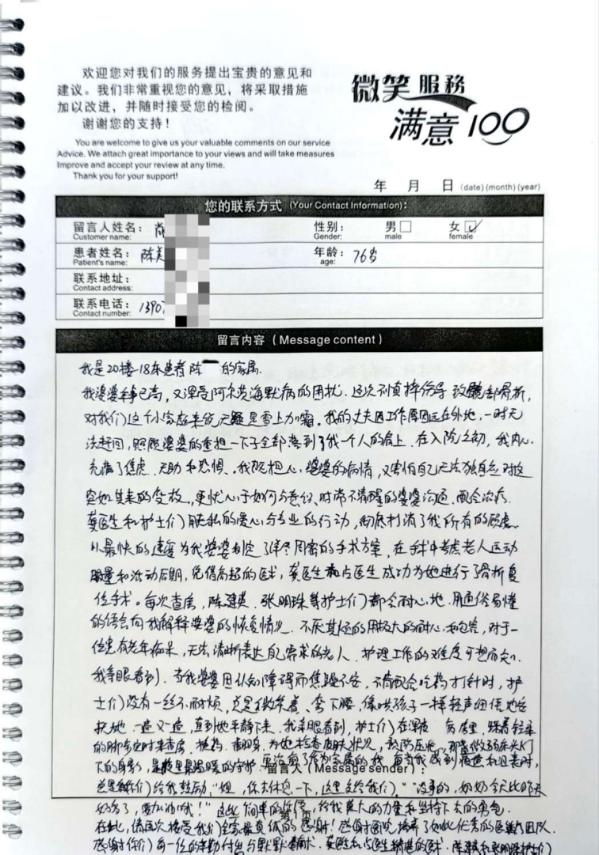 欢迎您对我们的服务提出宝贵的意见和
建议。我们非常重视您的意见，将采取措施
加以改进，并随时接受您的检阅。
谢谢您的支持！
You are welcome to give us your valuable comments on our service
Advice. We attach great importance to your views and will take measures
Improve and accept your review at any time.
Thank you for your support!
微笑服務
满意100
年 月 日 (date) (month) (year)
您的联系方式 (Your Contact Information):
留言人姓名:
Customer name:
性别: 男 女 ✓
Gender: male female
患者姓名: 陈
Patient's name:
年龄: 76岁
age:
联系地址:
Contact address:
联系电话: 1390
Contact number:
留言内容 (Message content)
我是20楼-18床患者陈 的家属.
我婆婆年事已高，又深受阿尔茨海默病的困扰. 这次不慎摔伤导致 骨折,
对我们这个小家庭来说 是雪上加霜. 我的丈夫因工作原因远在外地,一时无
法赶回, 照顾婆婆的重担一下子全部落到了我一个人的肩上. 在入院之初, 我内心
充满了焦虑、无助和恐惧. 我既担心婆婆的病情, 又害怕自己无法独自应对这
突如其来的变故, 更忧心于如何与意识时常不清醒的婆婆沟通, 配合治疗.
医生和护士们用 的爱心与专业的行动, 彻底打消了我所有的顾虑.
以最快的速度为我婆婆制定了详尽周密的手术方案, 在 考虑老人运动
量和活动后期, 凭借高超的医术, 医生 医生成功为她进行了骨折复
位手术. 每次查房, 陈 , 张明珠等护士们都会耐心地、用通俗易懂
的语言向我解释婆婆的恢复情况. 不厌其烦的用极大的耐心和包容, 对于一
位患有老年痴呆, 无法清晰表达自己需求的老人, 护理工作的难度可想而知.
我亲眼看到, 当我婆婆因认知障碍而焦躁不安、不肯配合吃药打针时, 护
士们没有一丝不耐烦, 总是 笑着, 弯下腰, 像哄孩子一样轻声细语地安
抚她. 一遍又一遍, 直到她平静下来. 我亲眼看到, 护士们在深夜 , 踩着轻轻
的脚步定时来查房, 、翻身, 为她检查皮肤状况, 预防压疮.
下的身影, 是 最温暖的守护.
留言人 (Message sender):
总是她们给我鼓励 "姐, 你去休息一下, 这里交给我们。" "没事的, 奶奶今天比昨天
好多了, 要加油哦!" 这些简单的话语, 给我莫大的力量和坚持下去的勇气.
在此, 请再次接受我们全家最真诚的感谢! 感谢医院培养了如此优秀的医护团队.
感谢你们每一位的辛勤付出与默默奉献.